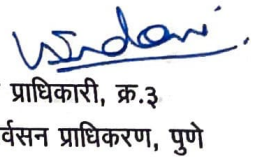 प्राधिकारी, क्र.३
र्वसन प्राधिकरण, पुणे